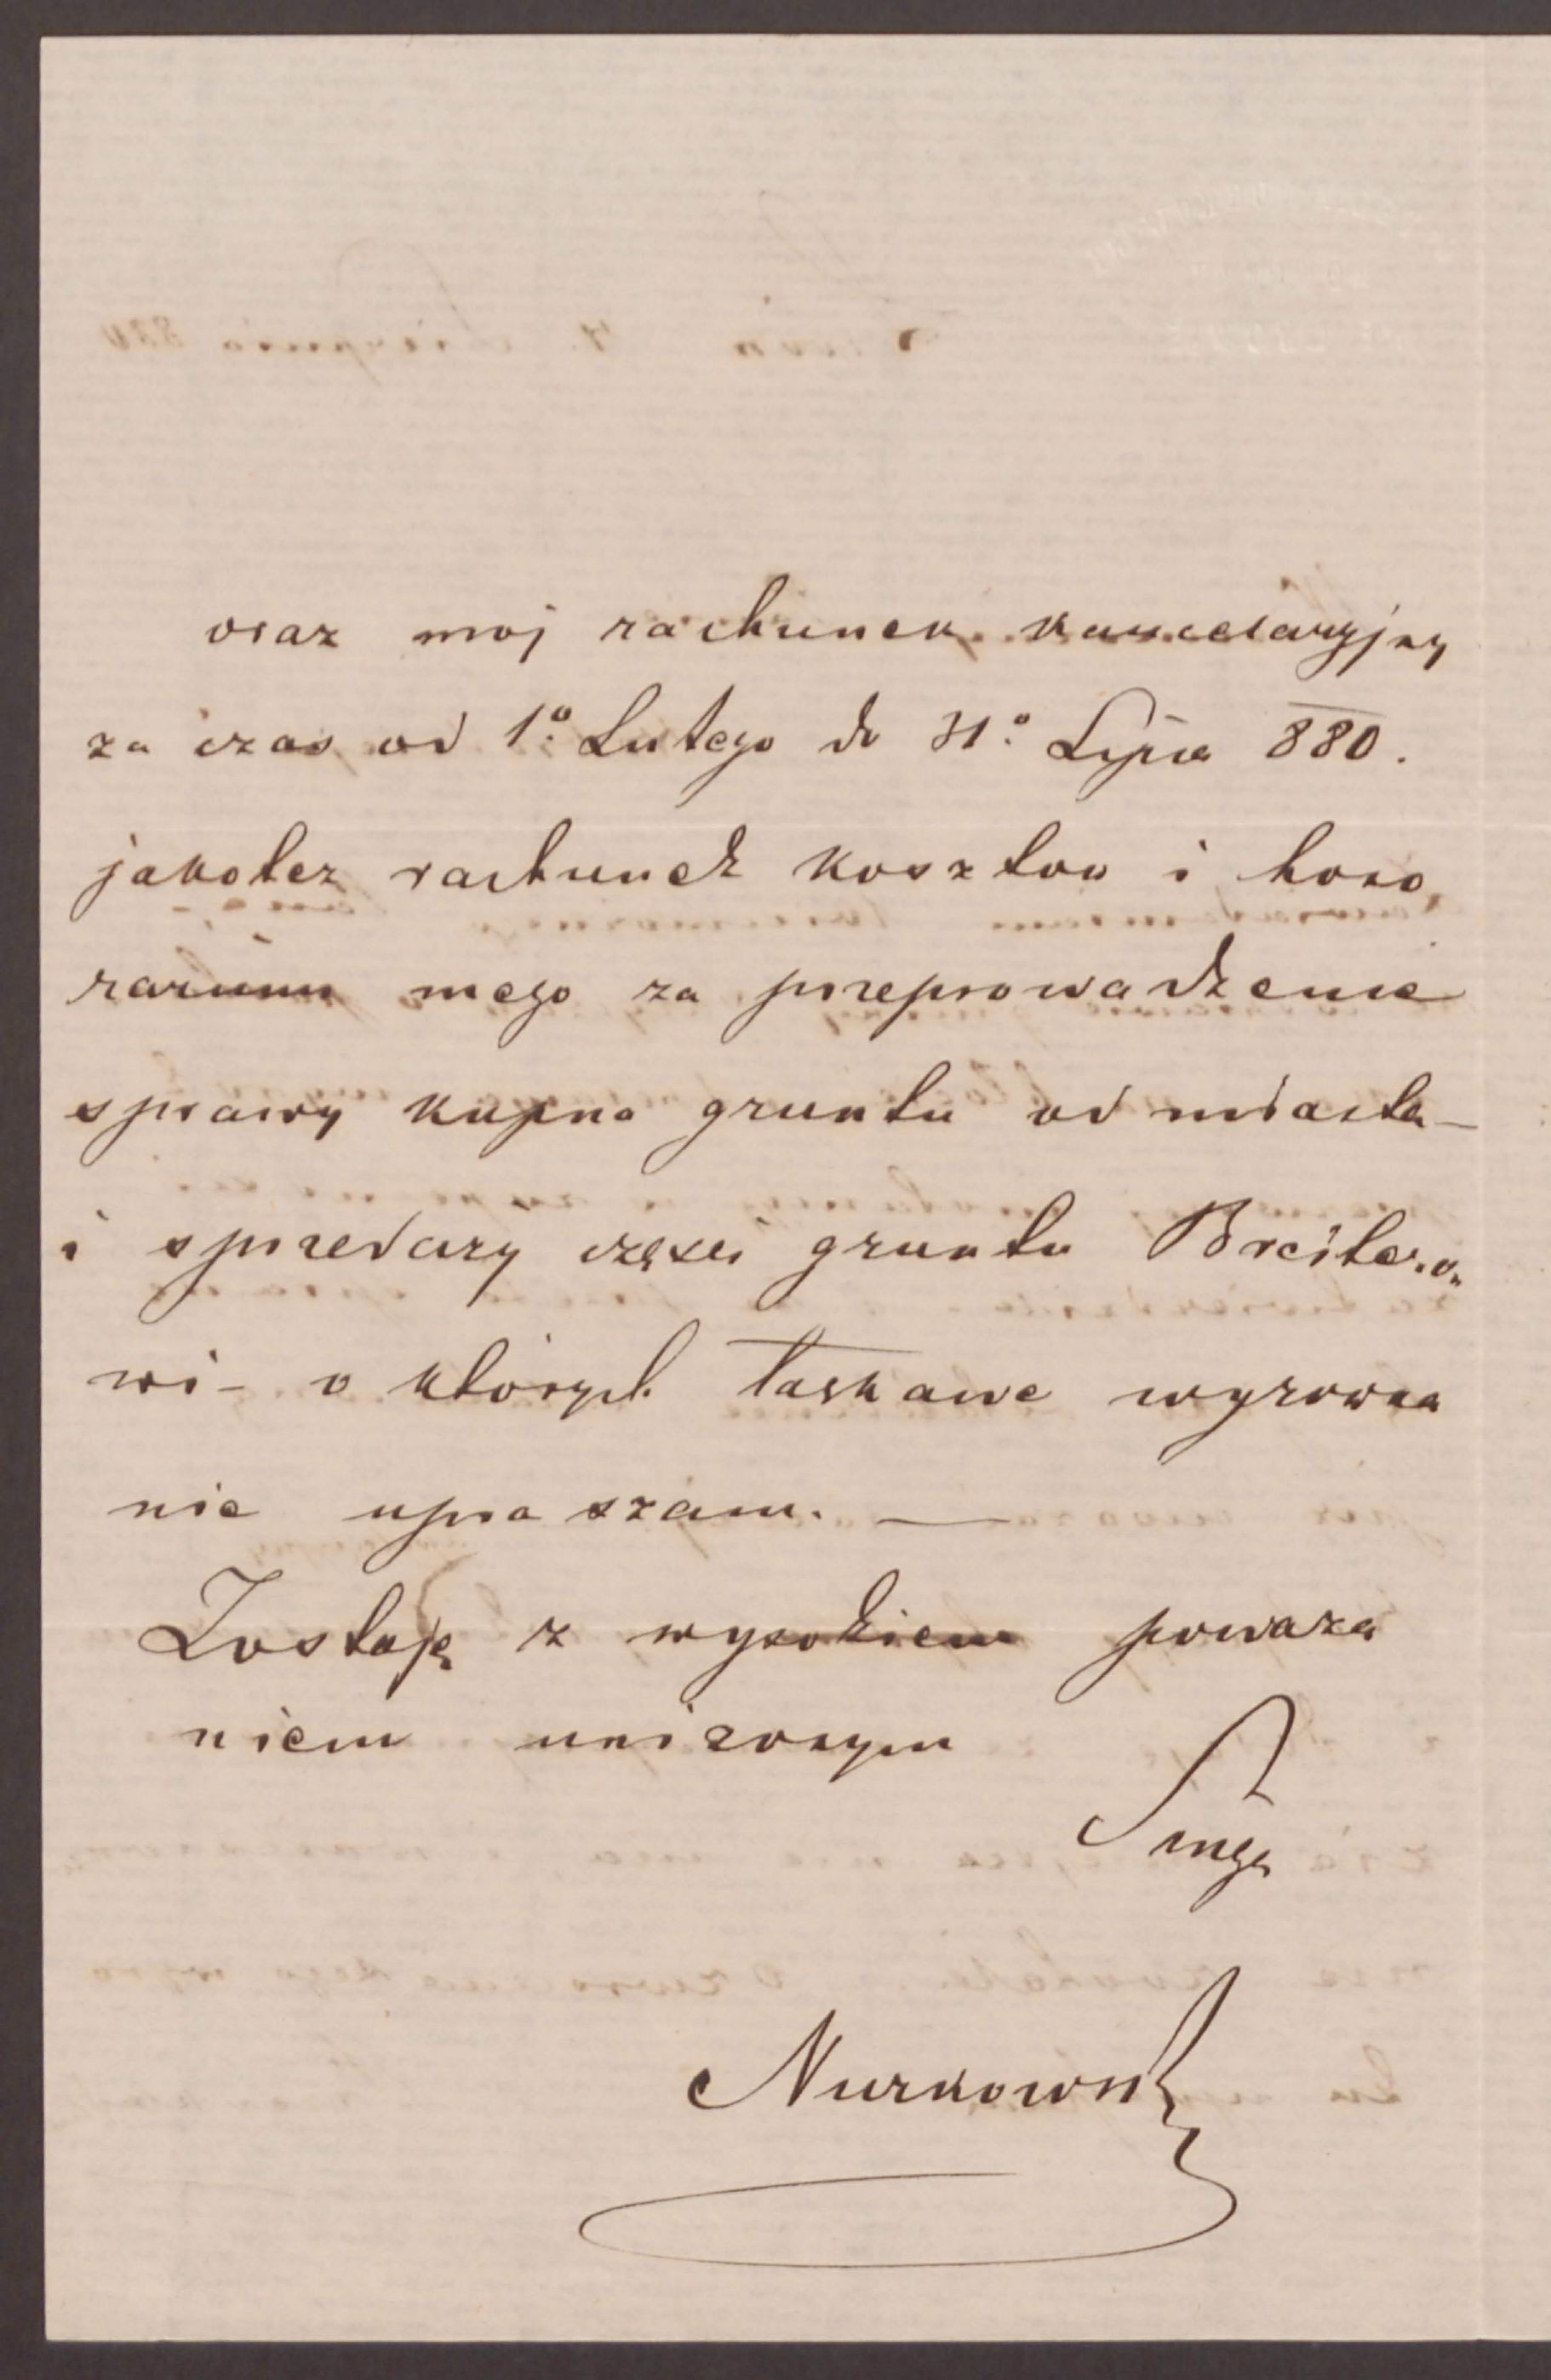 oraz moj rachunek kancelaryjny
za czas od 1º Lutego do 31º Lipca 880.
jakotez rachunek kosztow i hono
rarium mego za przeprowadzenie
sprawy kupna gruntu od miasta –
i sprzedazy częsci gruntu Breitero
wi – o których łaskawe wyrowna
nie upraszam. —
Zostaję z wysokiem powaza
niem unizonym
Sługa